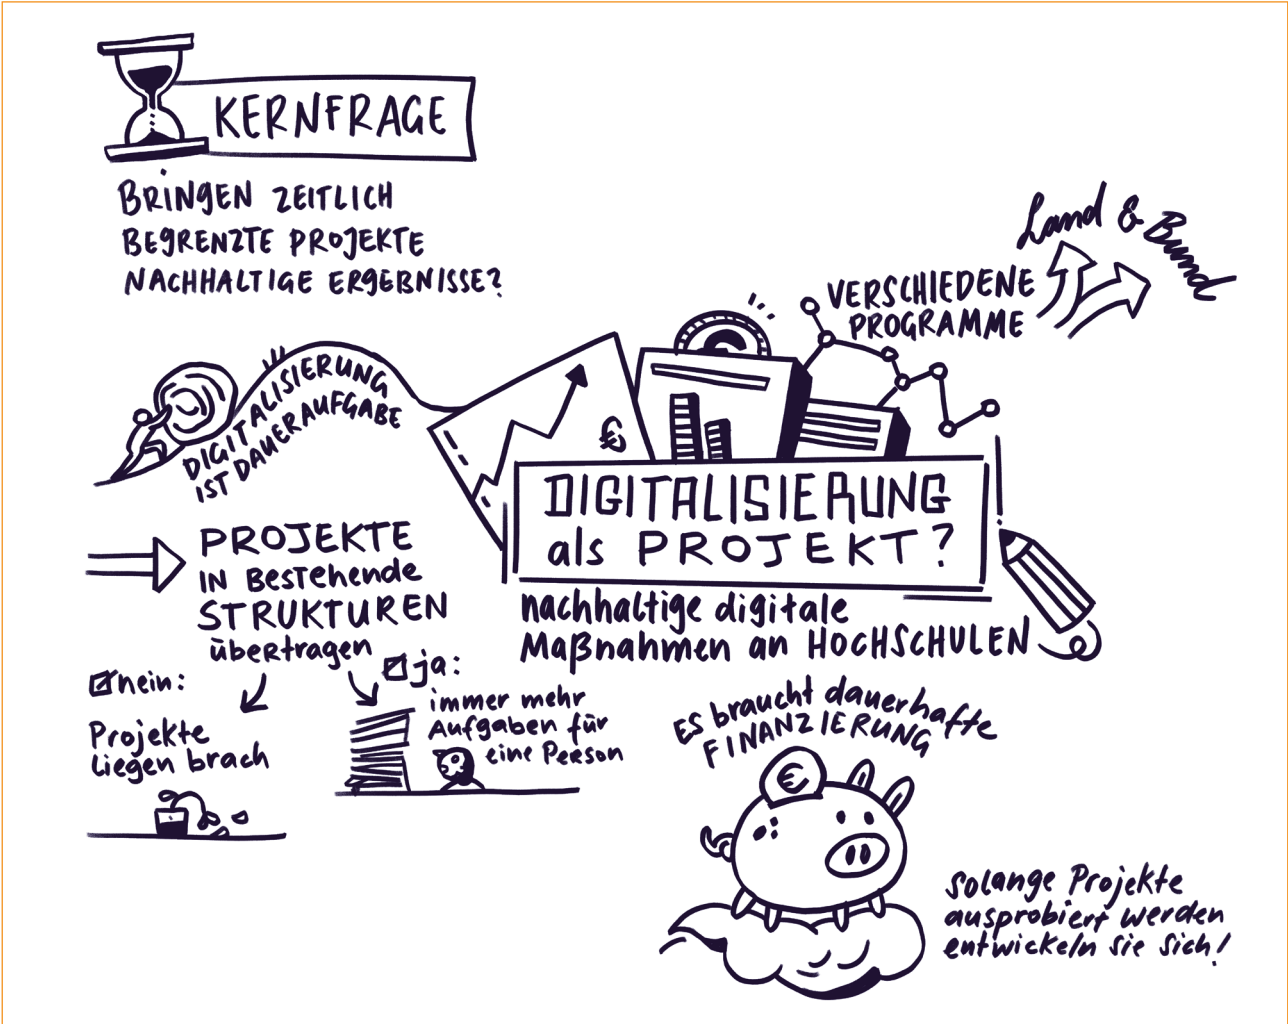 KERNFRAGE
BRINGEN ZEITLICH
BEGRENZTE PROJEKTE
NACHHALTIGE ERGEBNISSE?
Land & Bund
VERSCHIEDENE
PROGRAMME
DIGITALISIERUNG
IST DAUERAUFGABE
€
DIGITALISIERUNG
als PROJEKT?
nachhaltige digitale
Maßnahmen an HOCHSCHULEN
PROJEKTE
IN Bestehende
STRUKTUREN
übertragen
nein:
Projekte
liegen brach
ja:
immer mehr
Aufgaben für
eine Person
Es braucht dauerhafte
FINANZIERUNG
€
solange Projekte
ausprobiert werden
entwickeln sie sich!